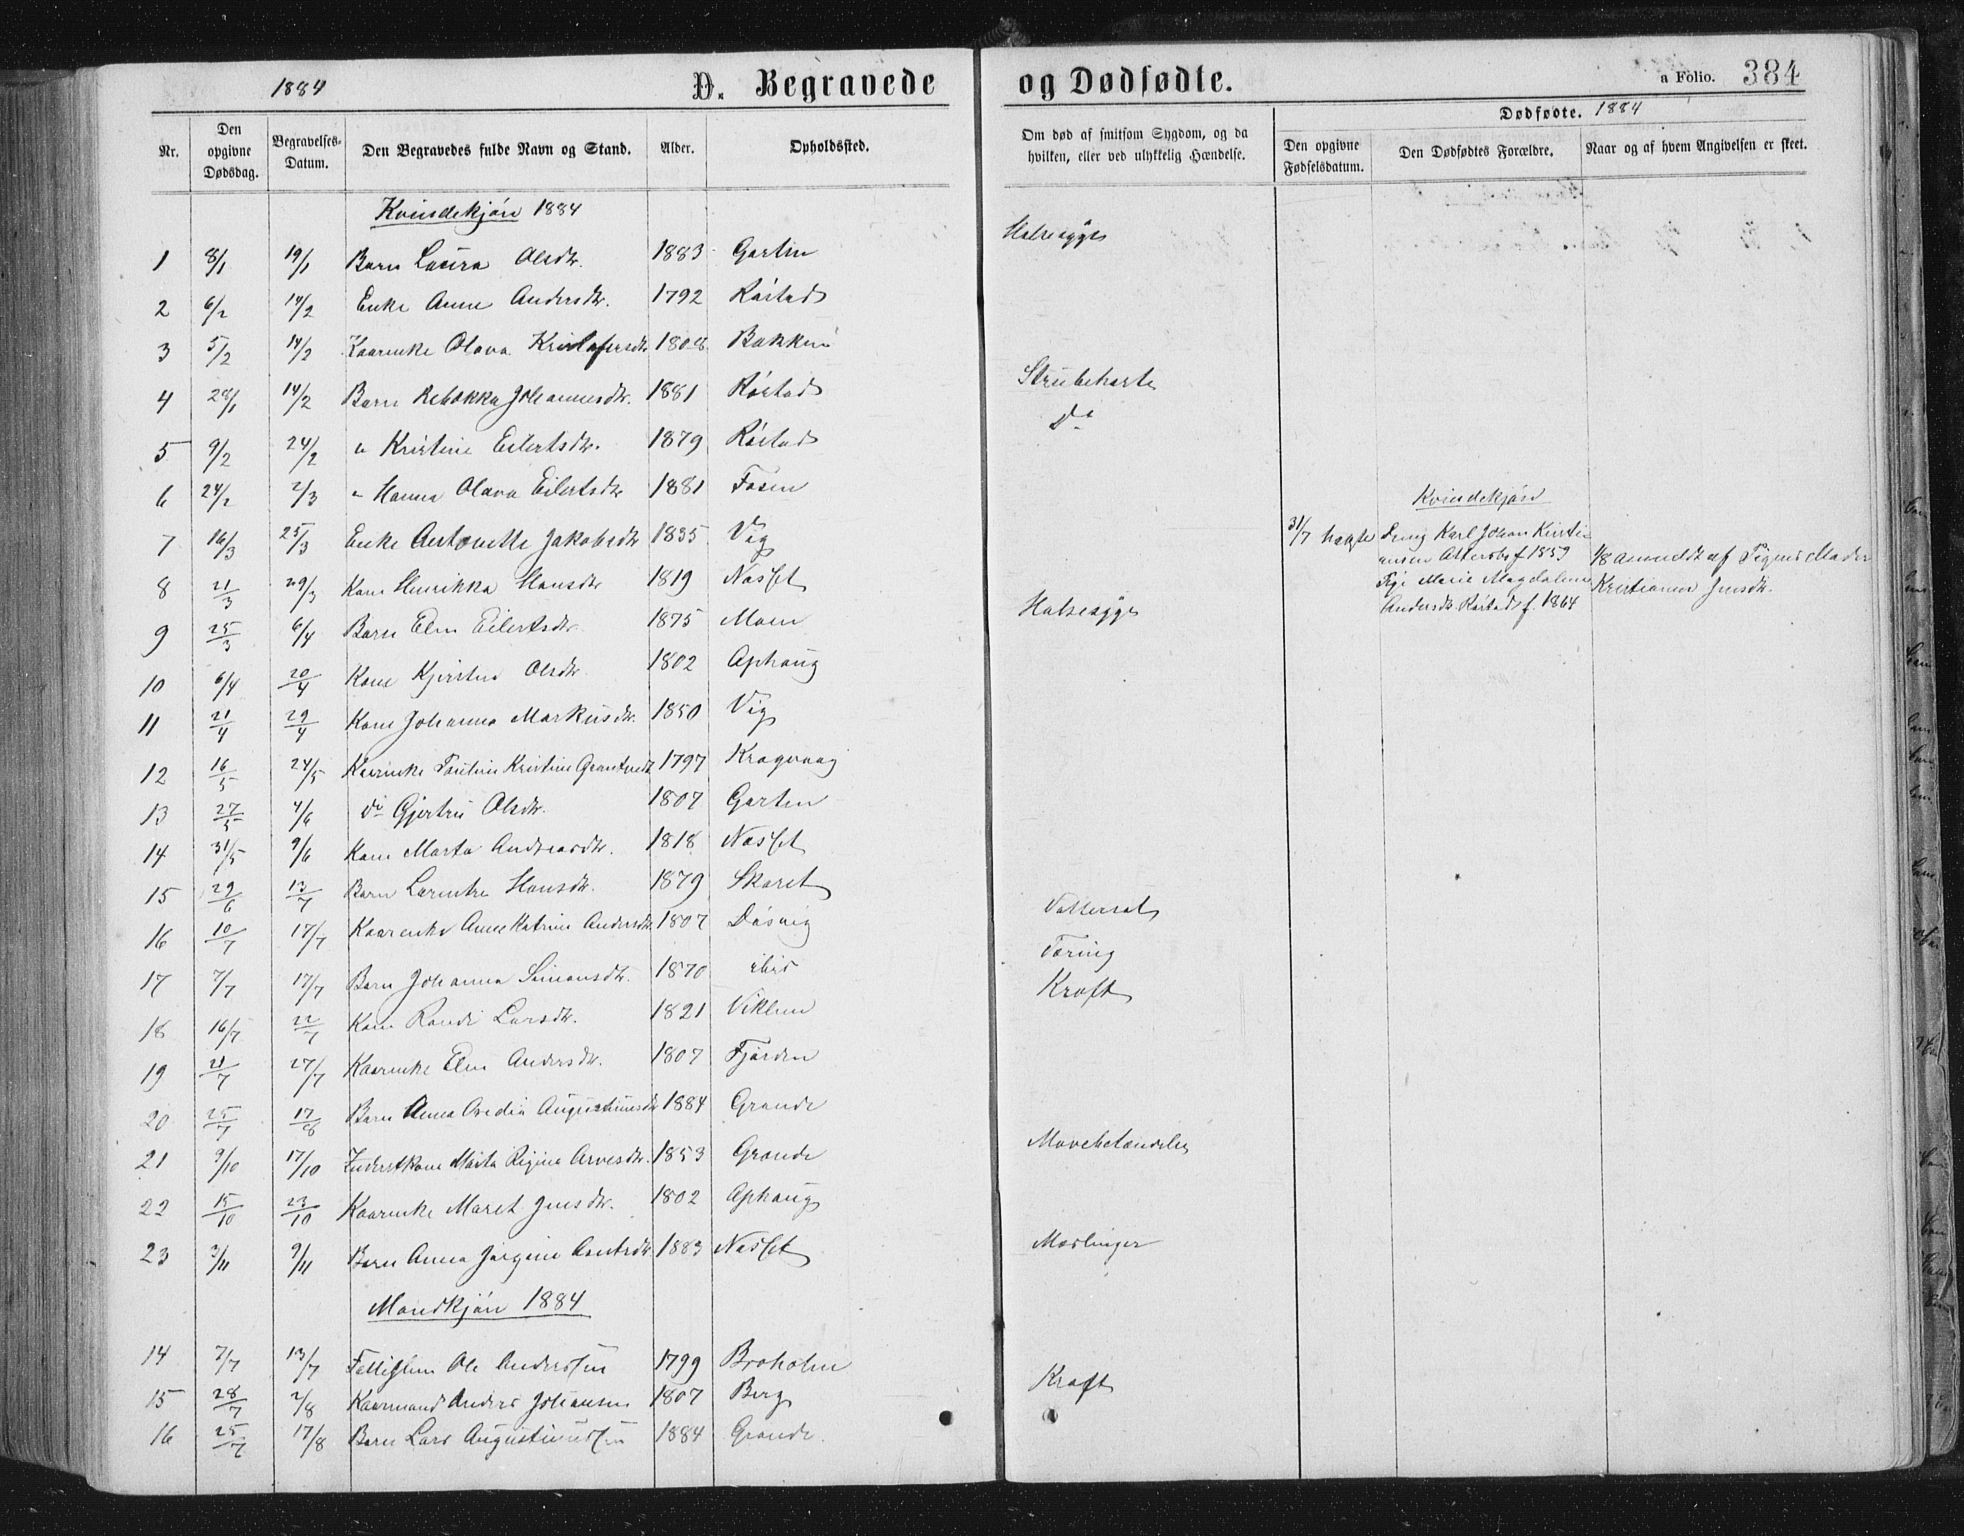 1884 D. Begravede og Dødfødte. a Folio. 384
Dødfødte. 1884
Nr. Den opgivne Dødsdag. Begravelses-Datum. Den Begravedes fulde Navn og Stand. Alder. Opholdssted. Om død af smitsom Sygdom, og da hvilken, eller ved ulykkelig Hændelse. Den opgivne Fødselsdatum. Den Dødfødtes Forældre. Naar og af hvem Angivelsen er skeet.
Kvindekjøn 1884
1 8/1 19/1 Barn Laura Olsdtr. 1883 Garten Halsesyge
2 6/2 14/2 Enke Anne Andersdtr. 1792 Røstad
3 5/2 14/2 Kaarenke Olava 1808 Bakken
4 28/1 14/2 Barn Rebekka Johannesdtr. 1881 Røstad Strubehoste
5 9/2 24/2 " Kristine Eilertsdtr. 1879 Røstad Do
6 24/2 2/3 " Hanna Olava Eilertsdtr 1881 Fosen
7 16/3 25/3 Enke Antonette Jakobsdtr 1835 Vig
8 21/3 29/3 Kone Henrikka Hansdtr 1819 Næsset
9 25/3 6/4 Barn Elen Eilertsdtr. 1875 Moen Halsesyge
10 6/4 20/4 Kone Kjersten Olsdtr 1802 Ophaug
11 21/4 29/4 Kone Johanna Markusdtr. 1850 Vig
12 16/5 24/5 Kaarenke Kristine 1797 Kragvaag
13 27/5 4/6 do Gjertru Olsdtr. 1807 Garten
14 31/5 9/6 Kone Marta Andreasdtr. 1818 Næsset
15 29/6 13/7 Barn Hansdtr. 1879 Skaret
16 10/7 17/7 Kaarenke Anne Katrine Andersdtr 1807 Døsvig Vattersot
17 7/7 17/7 Barn Johanna Simonsdtr. 1870 ibid Tæring
18 16/7 22/7 Kone Randi Larsdtr. 1821 Viklem Kræft
19 21/7 27/7 Kaarenke Elen Andersdtr. 1807 Fjorden
20 25/7 17/8 Barn Anna Augustinusdtr 1884 Grande
21 9/10 17/10 Inderstkone Marta Regine Arvesdtr. 1853 Grande Mavebetændelse
22 15/10 23/10 Kaarenke Maret Jensdtr. 1802 Ophaug
23 3/11 9/11 Barn Anna Jørgine 1883 Næsset Mæslinger
Kvindekjøn
31/7 Ung Karl Johan Kristi-
ansen f 1859 1/8 anmeldt af Pigens Moder
Pige Marie Magdalena Kristianna Jensdtr.
Andersdtr. Røstad f. 1864
Mandkjøn 1884
14 7/7 13/7 Ole Anderssen 1799 Broholm
15 28/7 2/8 Kaarmand Anders Johansen 1807 Berg Kræft
16 25/7 17/8 Barn Lars Augustinussen 1884 Grande.